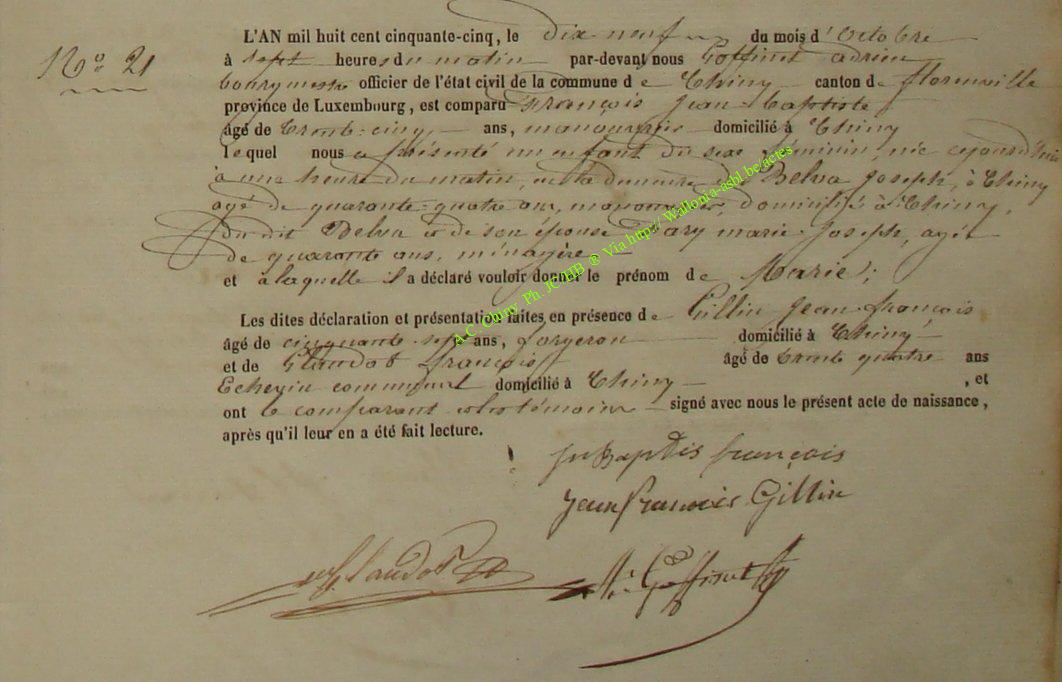 N° 21
L'AN mil huit cent cinquante-cinq, le dix neuf du mois d'Octobre
à sept heures du matin par-devant nous Goffinet adrien
bourgmestre officier de l'état civil de la commune de Chiny canton de florenville
province de Luxembourg, est comparu François Jean-baptiste
âgé de trente-cinq ans, manouvrier domicilié à Chiny
lequel nous a présenté un enfant du sexe féminin, née cejourd'hui
à une heure du matin, en la demeure de Belva Joseph, à Chiny
agé de quarante-quatre ans, manouvrier, domicilié à Chiny,
dudit Belva et de son épouse marie-Joseph, agée
de quarante ans, ménagère
et à laquelle il a déclaré vouloir donner le prénom de Marie;
Les dites déclaration et présentation faites en présence de Gillin Jean-françois
âgé de cinquante-sept ans, forgeron domicilié à Chiny
et de Claudot françois âgé de trente quatre ans
Echevin communal domicilié à Chiny , et
ont le comparant et les témoins signé avec nous le présent acte de naissance,
après qu'il leur en a été fait lecture.
Jn Baptis françois
Jean françois Gillin
Claudot
Goffinet
A.C. Chiny Ph. JCMJB ® Via http://Wallonia-asbl.be/actes